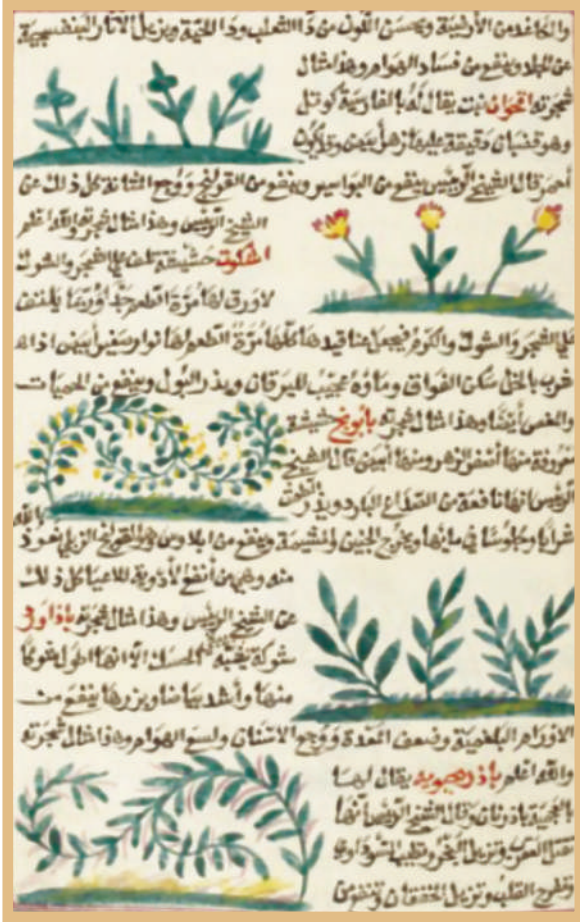 والكاغد من الأرضية ويحسن اللون من داء الثعلب وداء الحية ويزيل الآثار البنفسجية
عن الجلد وينفع من فساد الهوام وهذا مثال
شجرته اقحوان نبت يقال له بالفارسية
وهو قضبان دقيقة عليها زهر أبيض وقد يكون
أحمر قال الشيخ الرئيس ينفع من البواسير وينفع من القولنج ووجع المثانة كل ذلك عن
الشيخ الرئيس وهذا مثال شجرته والله اعلم
حشيشة تلتف على الشجر والشوك
لا ورق لها مرة الطعم جدا وربما يلتف
على الشجر والشوك والكرم فيجعل عناقيدها كلها مرة الطعم لها نوار صغير أبيض اذا
شرب بالخل سكن الفواق وماؤه عجيب لليرقان ويدر البول وينفع من الحميات
والمغص أيضا وهذا مثال شجرته بابونج حشيشة
معروفة منها أصفر الزهر ومنها أبيض قال الشيخ
الرئيس انها نافعة من الصداع البارد ويدر الطمث
شرابا وجلوسا في مائها ويخرج الجنين والمشيمة وينفع من ايلاوس
منه وهي من أنفع الأدوية للاعيا كل ذلك
عن الشيخ الرئيس وهذا مثال شجرته باذاورد
شوكة الحسك الا انها اطول شوكا
منها وأشد بياضا وبزرها ينفع من
الاورام البلغمية وضعف المعدة ووجع الاسنان ولسع الهوام وهذا مثال شجرته
والله اعلم باذرنجبويه يقال لها
وقال الشيخ الرئيس أنها
العقرب وتزيل البخر
وتفرح القلب وتزيل الخفقان